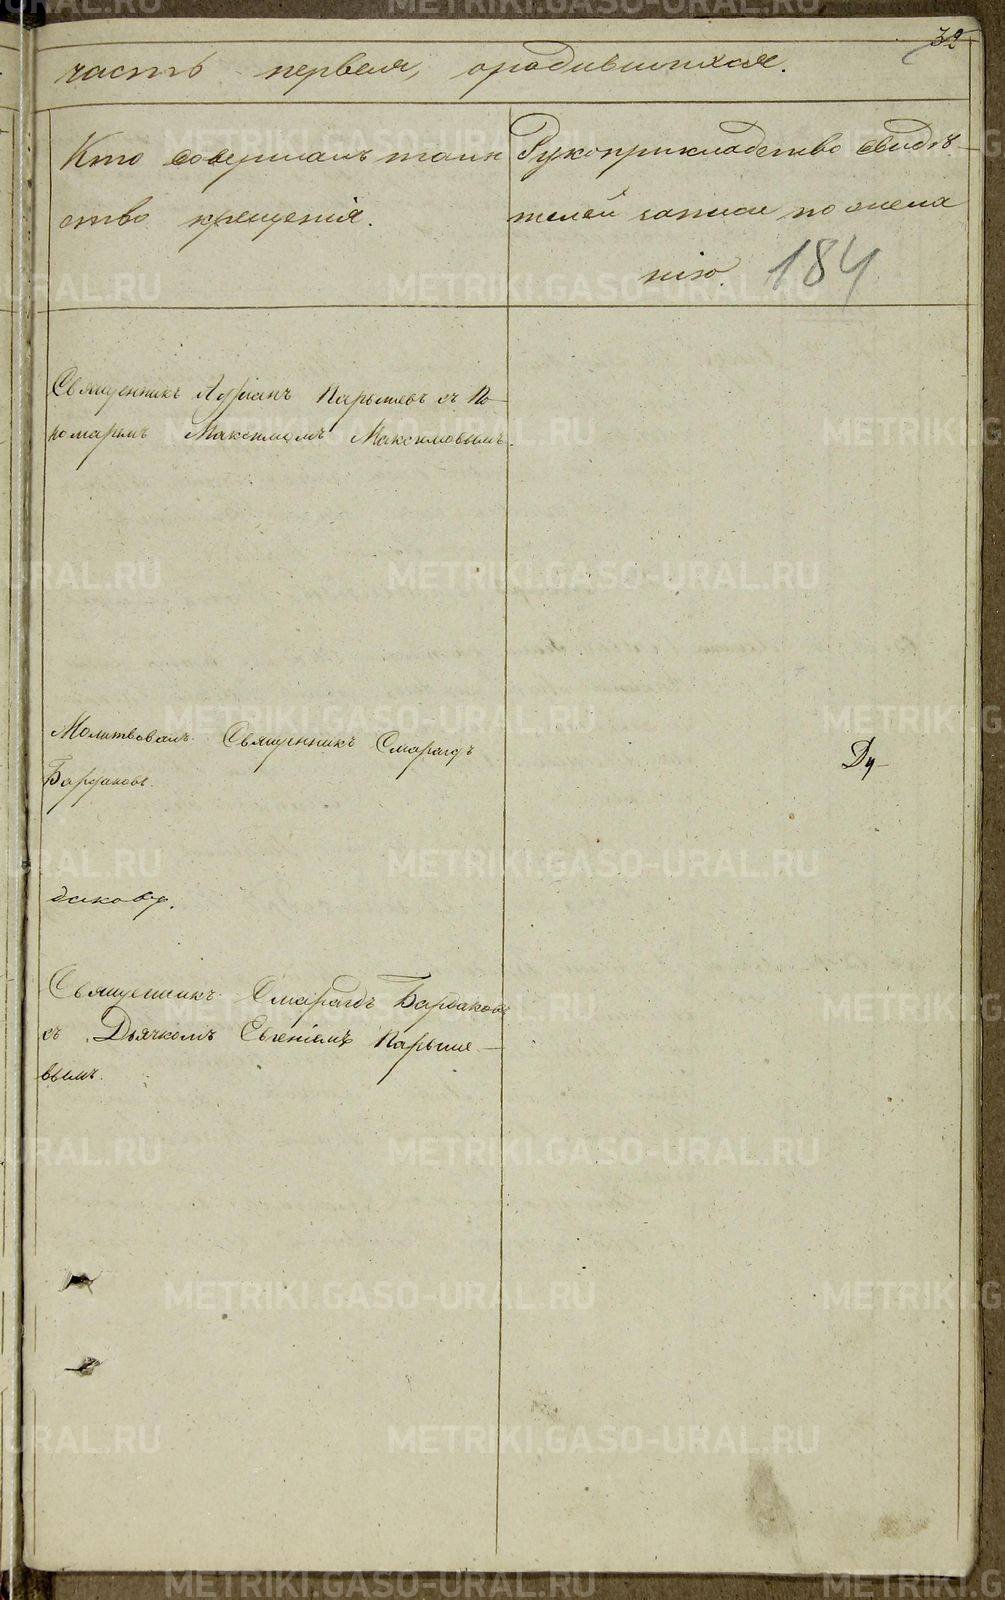 32
часть первая, о родившихся.
Кто совершалъ таин
ство крещенія.
Рукоприкладство свидѣ-
телей записи по жела
нію.
184
Священникъ Адріанъ Парышевъ съ По-
номаремъ Максимомъ Максимовымъ.
Молитвовалъ Священникъ Смарагдъ
Бардаковъ.
Ду-
Священникъ Смарагдъ Бардаковъ
съ Дьячкомъ Евгеніемъ Парыше-
вымъ.
METRIKI.GASO-URAL.RU